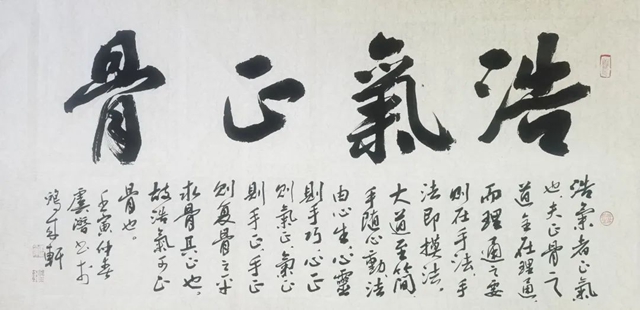 浩氣正骨
浩氣者正氣
也夫正骨之
道全在理通
而理通之要
則在手法手
法即摸法
大道至簡
手隨心動法
由心生心靈
則手巧心正
則氣正氣正
則手正手正
則復骨之平
求骨其正也
故浩氣可正
骨也
壬寅仲春
虞潛书於
鴻軒